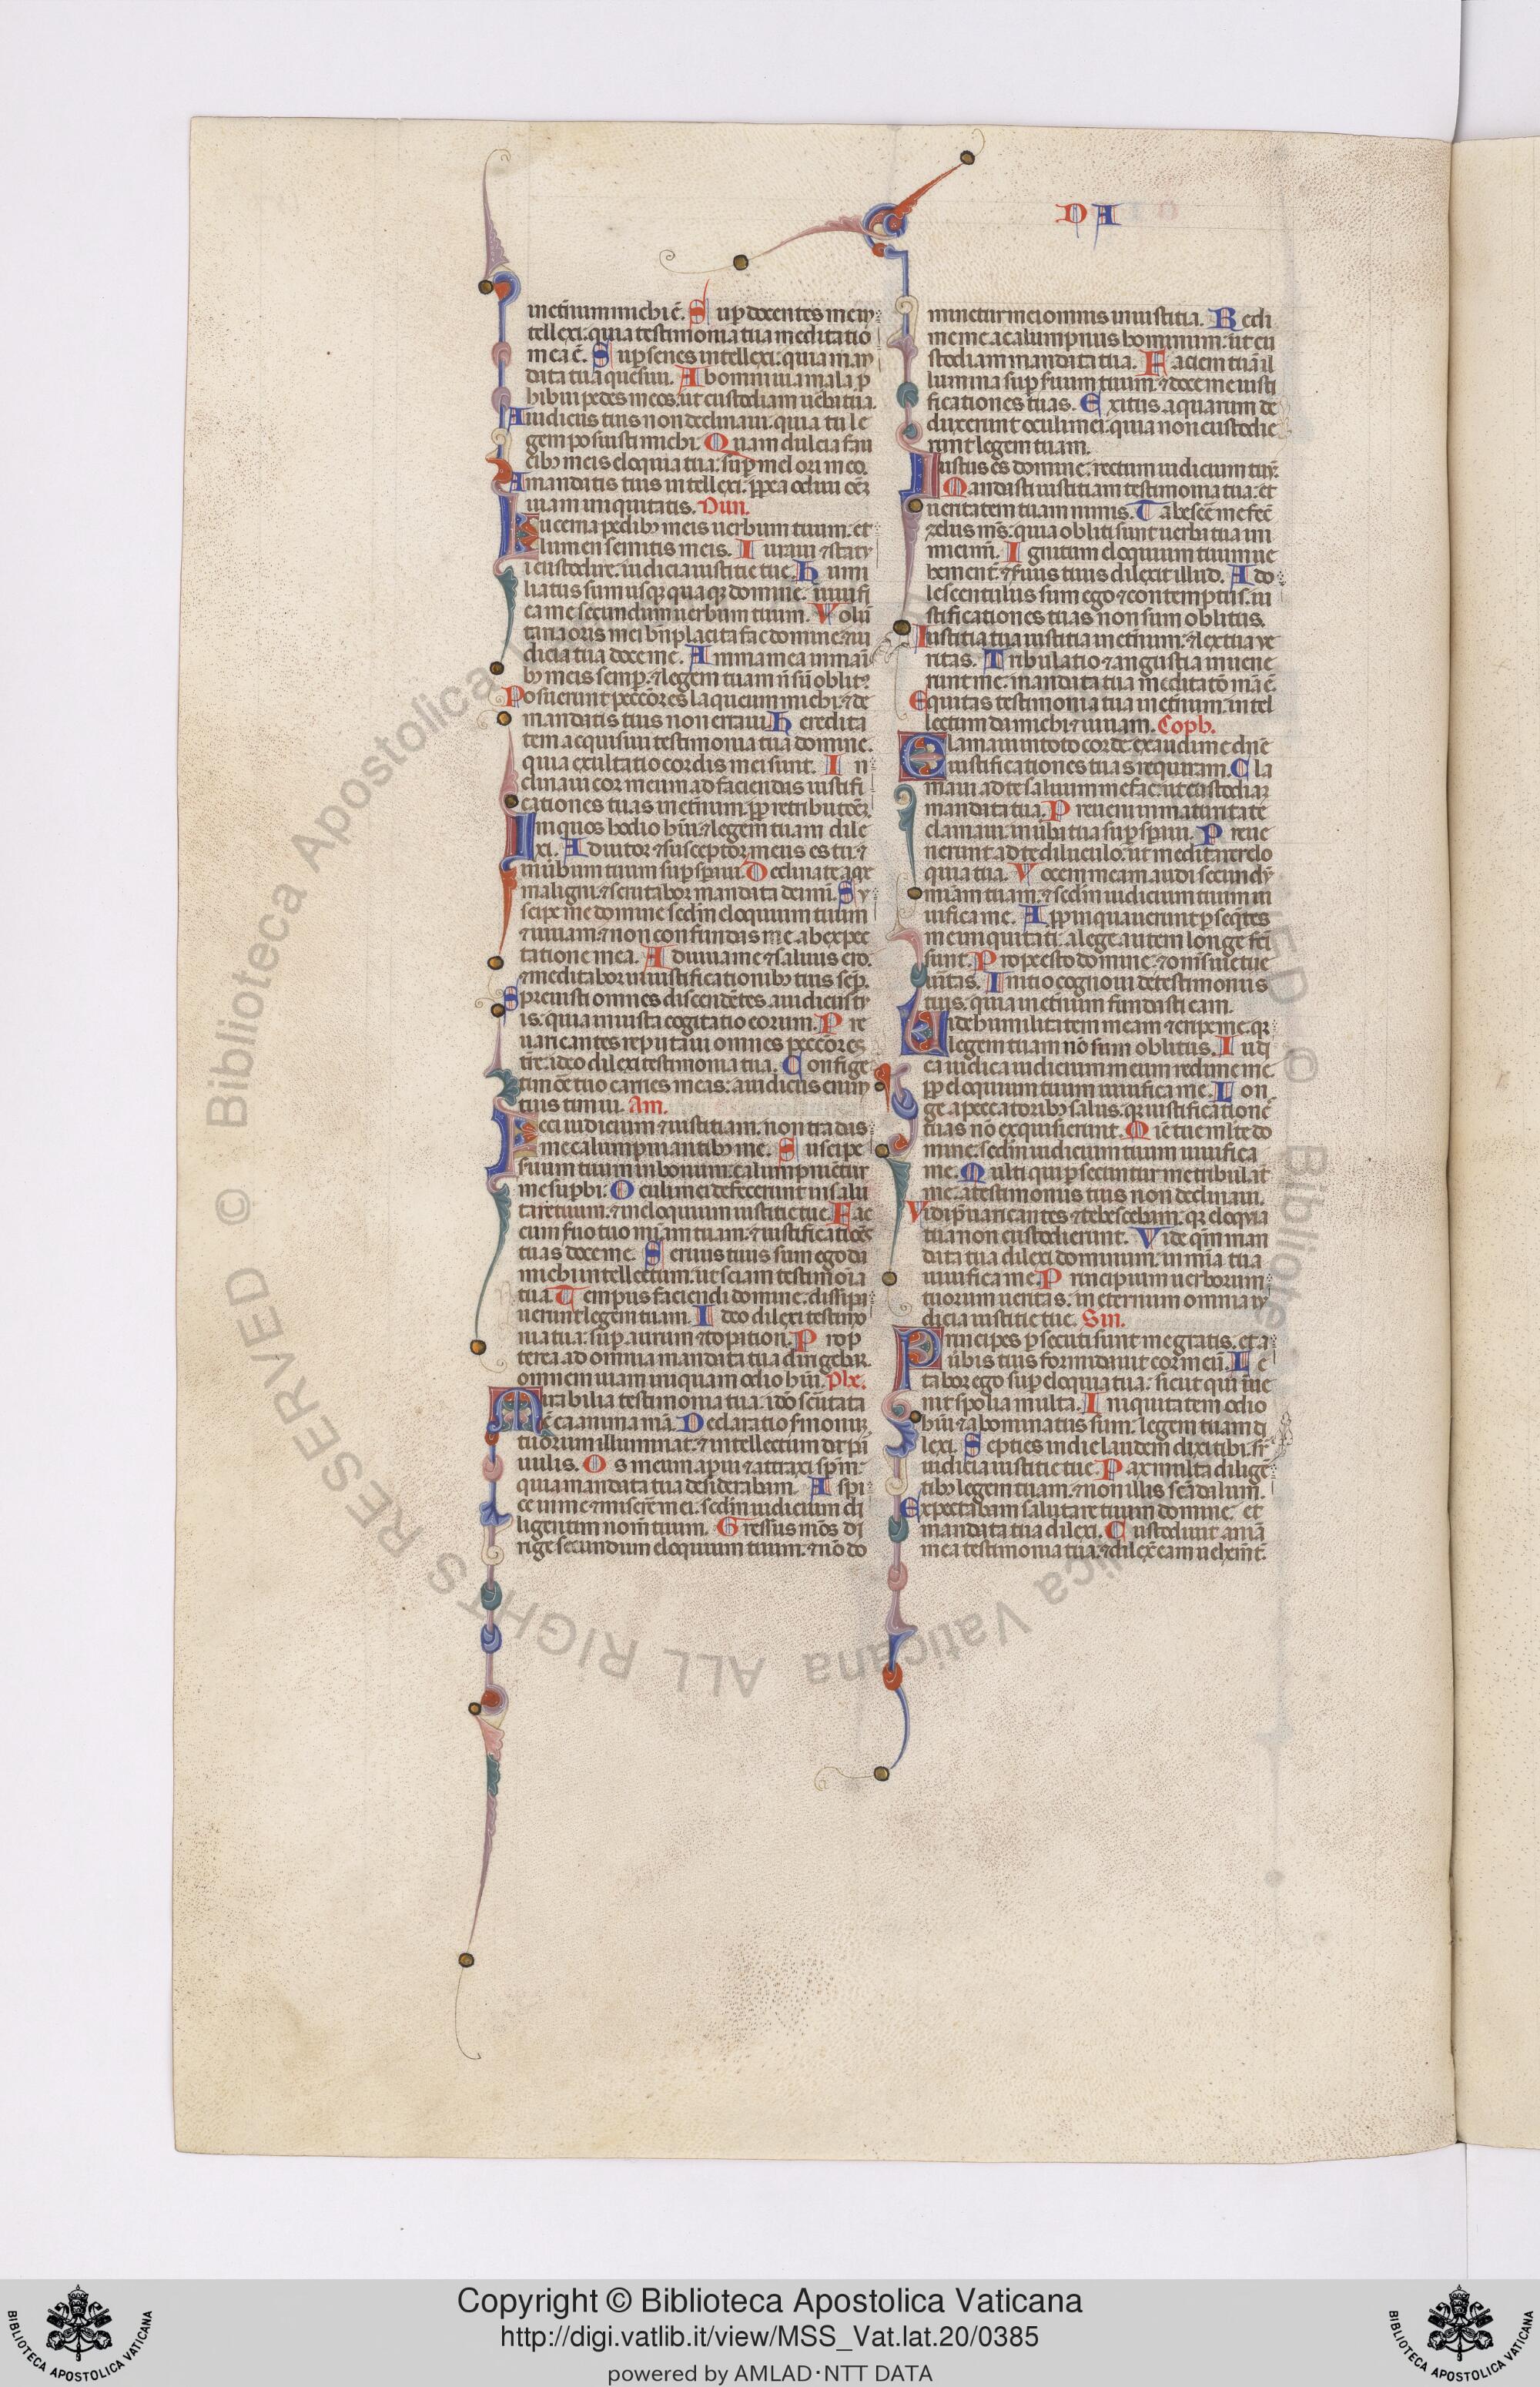 D A
inet̄num michi ē. Sup̱ docentes me in
tellexi: quia testimonia tua meditatio
mea ē. Sup̱ senes intellexi: quia man
data tua quesiui. Ab omni uia mala p̱
hibui pedes meos: ut custodiam uerba tua.
A iudiciis tuis non declinaui: quia tu le
gem posuisti michi. Quam dulcia fau
cibꝫ meis eloquia tua: sup̱ mel ori meo.
A mandatis tuis intellexi: p̱p̱ea odiui oēꝫ
uiam iniquitatis. Nun.
Lucerna pedibꝫ meis uerbum tuum: et
lumen semitis meis. Iuraui ⁊ statu
i custodire: iudicia iustitie tue. Humi
liatus sum usqꝫ quaqꝫ domine: uiuifi
ca me secundum uerbum tuum. Volū
taria oris mei bn̄placita fac domine: ⁊ iu
dicia tua doce me. Anima mea in mani
bꝫ meis semp̱: ⁊ legem tuam ñ sū oblitꝰ.
Posuerunt peccōres laqueum michi: ⁊ de
mandatis tuis non erraui. Heredita
tem acquisiui testimonia tua domine:
quia exultatio cordis mei sunt. In
clinaui cor meum ad faciendas iustifi
cationes tuas inet̄num: p̱p̱ retributōeꝫ.
Iniquos hodio hūi: ⁊ legem tuam dile
xi. Adiutor ⁊ susceptor meus es tu: ⁊
in ūbum tuum sup̱sp̱aui. Declinate a me
maligni: ⁊ scrutabor mandata dei mī. Su
scipe me domine sed̄m eloquium tuum
⁊ uiuam: ⁊ non confundas me ab expec
tatione mea. Adiuua me ⁊ saluus ero:
⁊ meditabor in iustificationibꝫ tuis sep̱.
Spreuisti omnes discendētes a iudiciis tu
is: quia iniusta cogitatio eorum. Pre
uaricantes reputaui omnes peccōres
tr̄e: ideo dilexi testimonia tua. Confige
timōe tuo carnes meas: a iudiciis enim
tuis timui. Ain.
Feci iudicium ⁊ iustitiam: non tradas
me calumpniantibꝫ me. Suscipe
seruum tuum in bonum: calumpniētur
me sup̱bi. Oculi mei defecerunt in salu
tare tuum: ⁊ in eloquium iustitie tue. Fac
cum seruo tuo mīam tuam: ⁊ iustificatiōes
tuas doce me. Seruus tuus sum ego da
michi intellectum: ut sciam testimōia
tua. Tempus faciendi domine: dissipa
uerunt legem tuam. Ideo dilexi testimo
nia tua: sup̱ aurum ⁊ topation. Prop
terea ad omnia mandata tua dirigebar:
omnem uiam iniquam odio hūi. Phe.
Mirabilia testimonia tua: idō scrutata
ē ea anima mā. Declaratio sermonuꝫ
tuorum illuminat: ⁊ intellectum dat p̱
uulis. Os meum ap̱ui ⁊ attraxi sp̄m:
quia mandata tua desiderabam. Aspi
ce in me ⁊ miserē mei: sed̄m iudicium di
ligentium nom̄ tuum. Gressus mōs di
rige secundum eloquium tuum: ⁊ nō do
minetur mei omnis iniustitia. Redi
me me a calumpniis hominum: ut cu
stodiam mandata tua. Faciem tuā il
lumina sup̱ seruum tuum: ⁊ doce me iusti
ficationes tuas. Exitus aquarum de
duxerunt oculi mei: quia non custodie
runt legem tuam.
Iustus es domine: rectum iudicium tuum.
Mandasti iustitiam testimonia tua: et
ueritatem tuam nimis. Tabescē me fec̄
zelus m̄s: quia obliti sunt uerba tua in
mici m̄. Ignitum eloquium tuum ue
hement̄: ⁊ seruus tuus dilexit illud. Ado
lescentulus sum ego ⁊ contemptus: iu
stificationes tuas non sum oblitus.
Iustitia tua iustitia inet̄num: ⁊ lex tua ue
ritas. Tribulatio ⁊ angustia inuene
runt me: mandata tua meditatō mā ē.
Equitas testimonia tua inet̄num: intel
lectum da michi ⁊ uiuam. Coph.
Clamaui in toto corde exaudi me dn̄e
iustificationes tuas requiram. Cla
maui ad te saluum me fac: ut custodiaꝫ
mandata tua. Preueni inmaturitate
clamaui: in ūba tua sup̱sp̱aui. Preue
nerunt ad te diluculo: ut meditarer elo
quia tua. Vocem meam audi secundū
mīam tuam: ⁊ sed̄m iudicium tuum ui
uifica me. App̱inquauerunt p̱seqn̄tes
me iniquitati: a lege autem longe fc̄i
sunt. Prope es tu domine: ⁊ om̄s uie tue
ūitas. Initio cognoui de testimoniis
tuis: quia inet̄num fundasti eam.
Uide humilitatem meam ⁊ eripe me: qꝛ
legem tuam nō sum oblitus. Iudi
ca iudica iudicium meum redime me:
p̱p̱ eloquium tuum uiuifica me. Lon
ge a peccatoribꝫ salus: qꝛ iustificationē
tuas nō exquisierunt. Mīe tue mlt̄e do
mine: sed̄m iudicium tuum uiuifica
me. Multi qui p̱secuntur me ⁊ tribulāt
me: a testimoniis tuis non declinaui.
Vidi p̱uaricantes ⁊ tebescebam: qꝛ eloquia
tua non custodierunt. Vide qm̄ man
data tua dilexi dominum: in mīa tua
uiuifica me. Principium uerborum
tuorum ueritas: in eternum omnia iu
dicia iustitie tue. Sin.
Principes p̱secuti sunt me gratis: et a
ūbis tuis formidauit cor meū. Le
tabor ego sup̱ eloquia tua: sicut qui inue
nit spolia multa. Iniquitatem odio
hūi ⁊ abominatus sum: legem tuam di
lexi. Septies in die laudem dixi tibi: sr̄
iudicia iustitie tue. Pax multa diligē
tibꝫ legem tuam: ⁊ non illis scādalum.
Expectabam salutare tuum domine: et
mandata tua dilexi. Custodiuit aniā
mea testimonia tua: ⁊ dilex̄ eam uehem̄t̄.
© Biblioteca Apostolica Vaticana ALL RIGHTS RESERVED
Copyright © Biblioteca Apostolica Vaticana
http://digi.vatlib.it/view/MSS_Vat.lat.20/0385
powered by AMLAD·NTT DATA
BIBLIOTECA APOSTOLICA VATICANA
BIBLIOTECA APOSTOLICA VATICANA